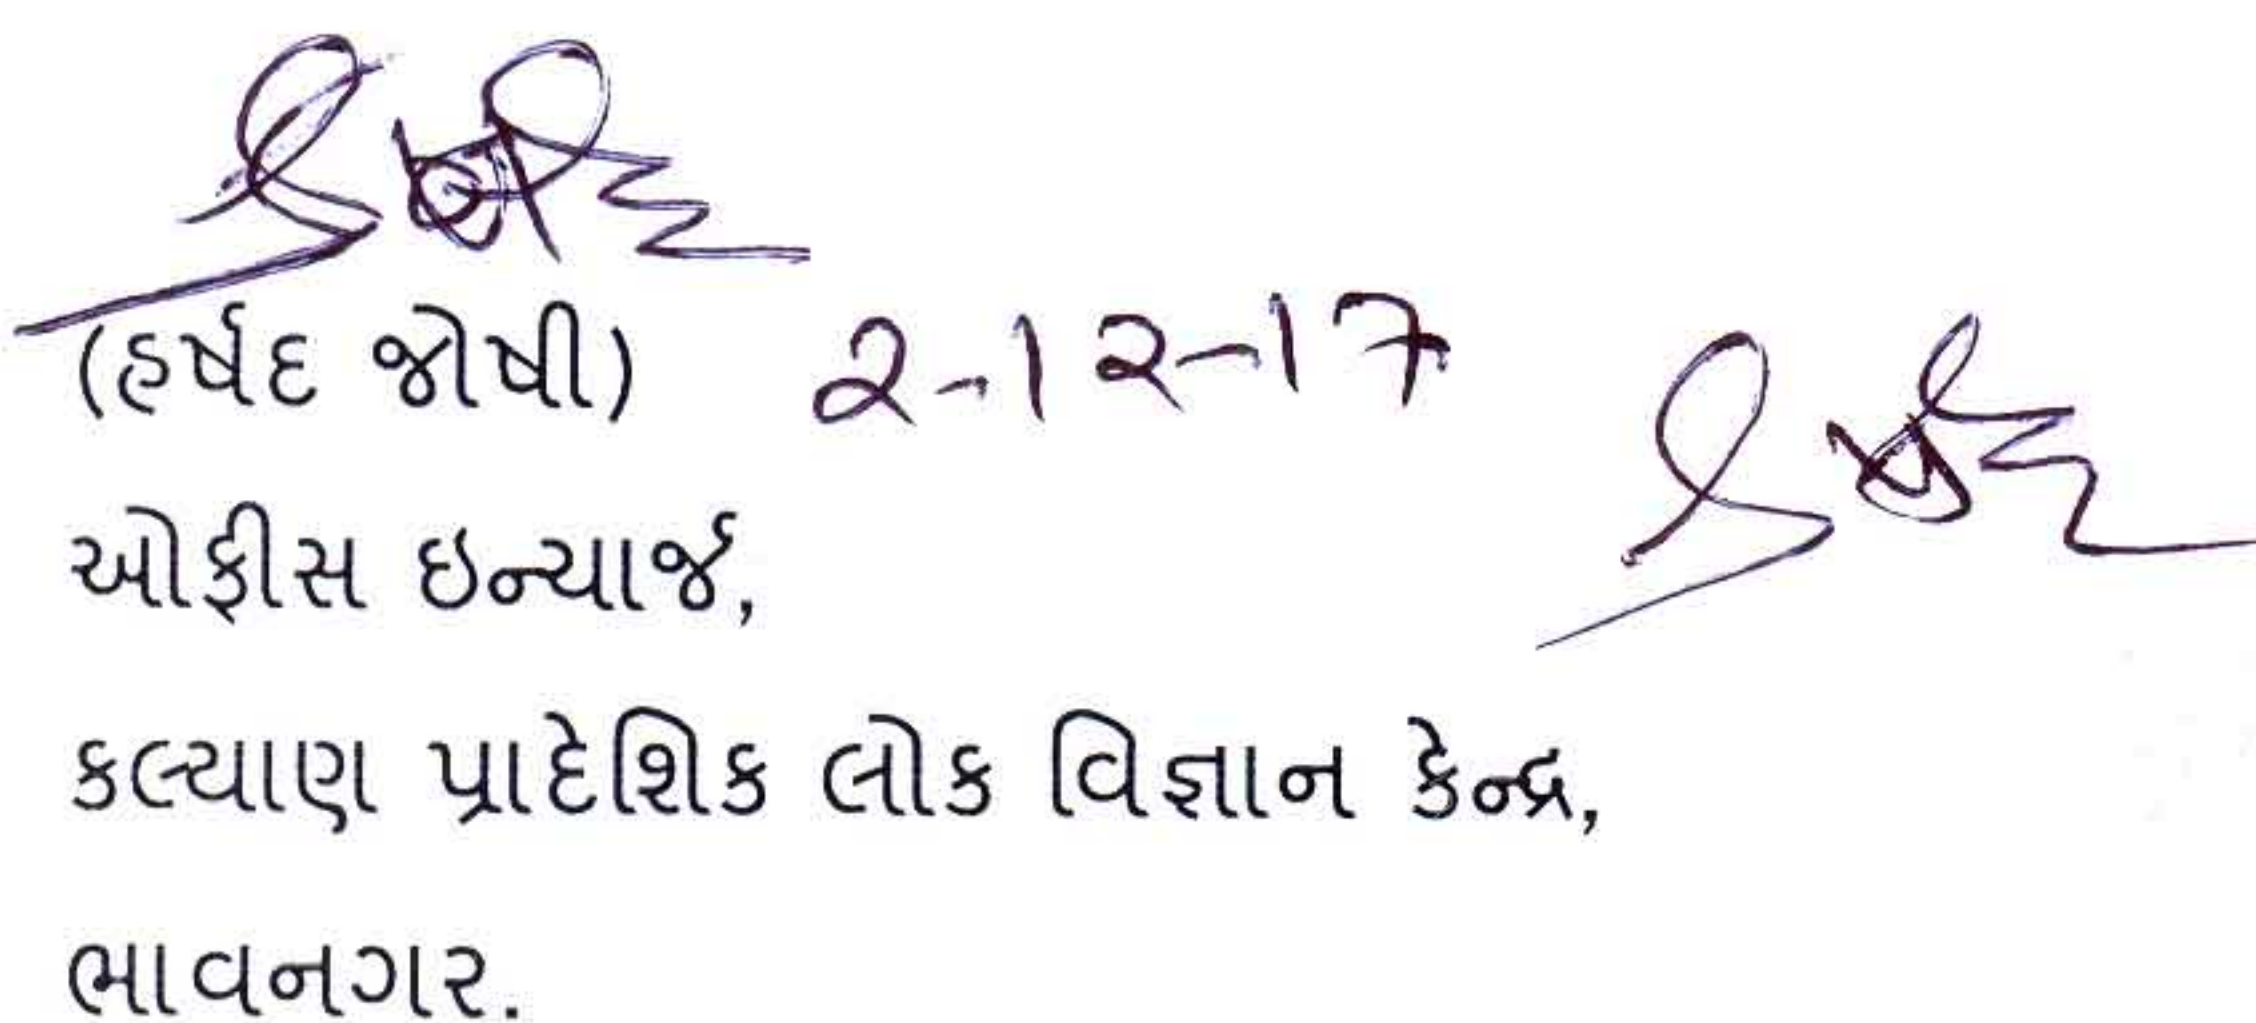 (હર્ષદ જોષી) 2-12-17
ઓફીસ ઇન્ચાર્જ,
કલ્યાણ પ્રાદેશિક લોક વિજ્ઞાન કેન્દ્ર,
ભાવનગર.